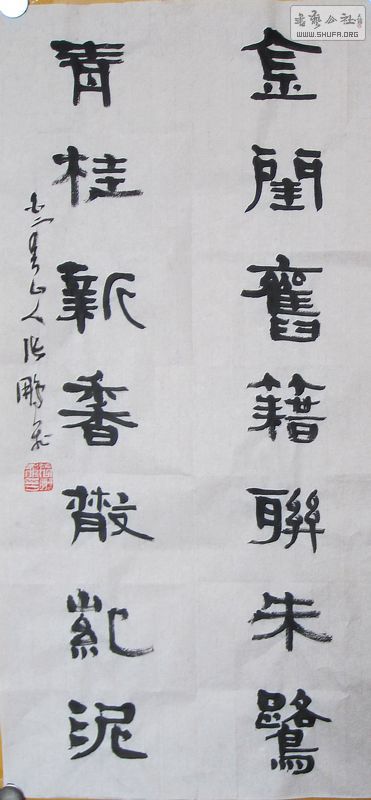 書藝公社
WWW.SHUFA.ORG
金閨舊籍聯朱鷺
青桂新香散紫泥
山人張鵬